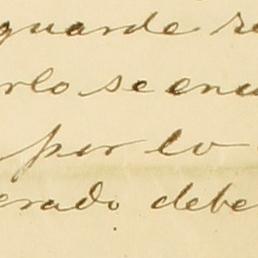 guarde
rlo se encu
por lo
erado debe